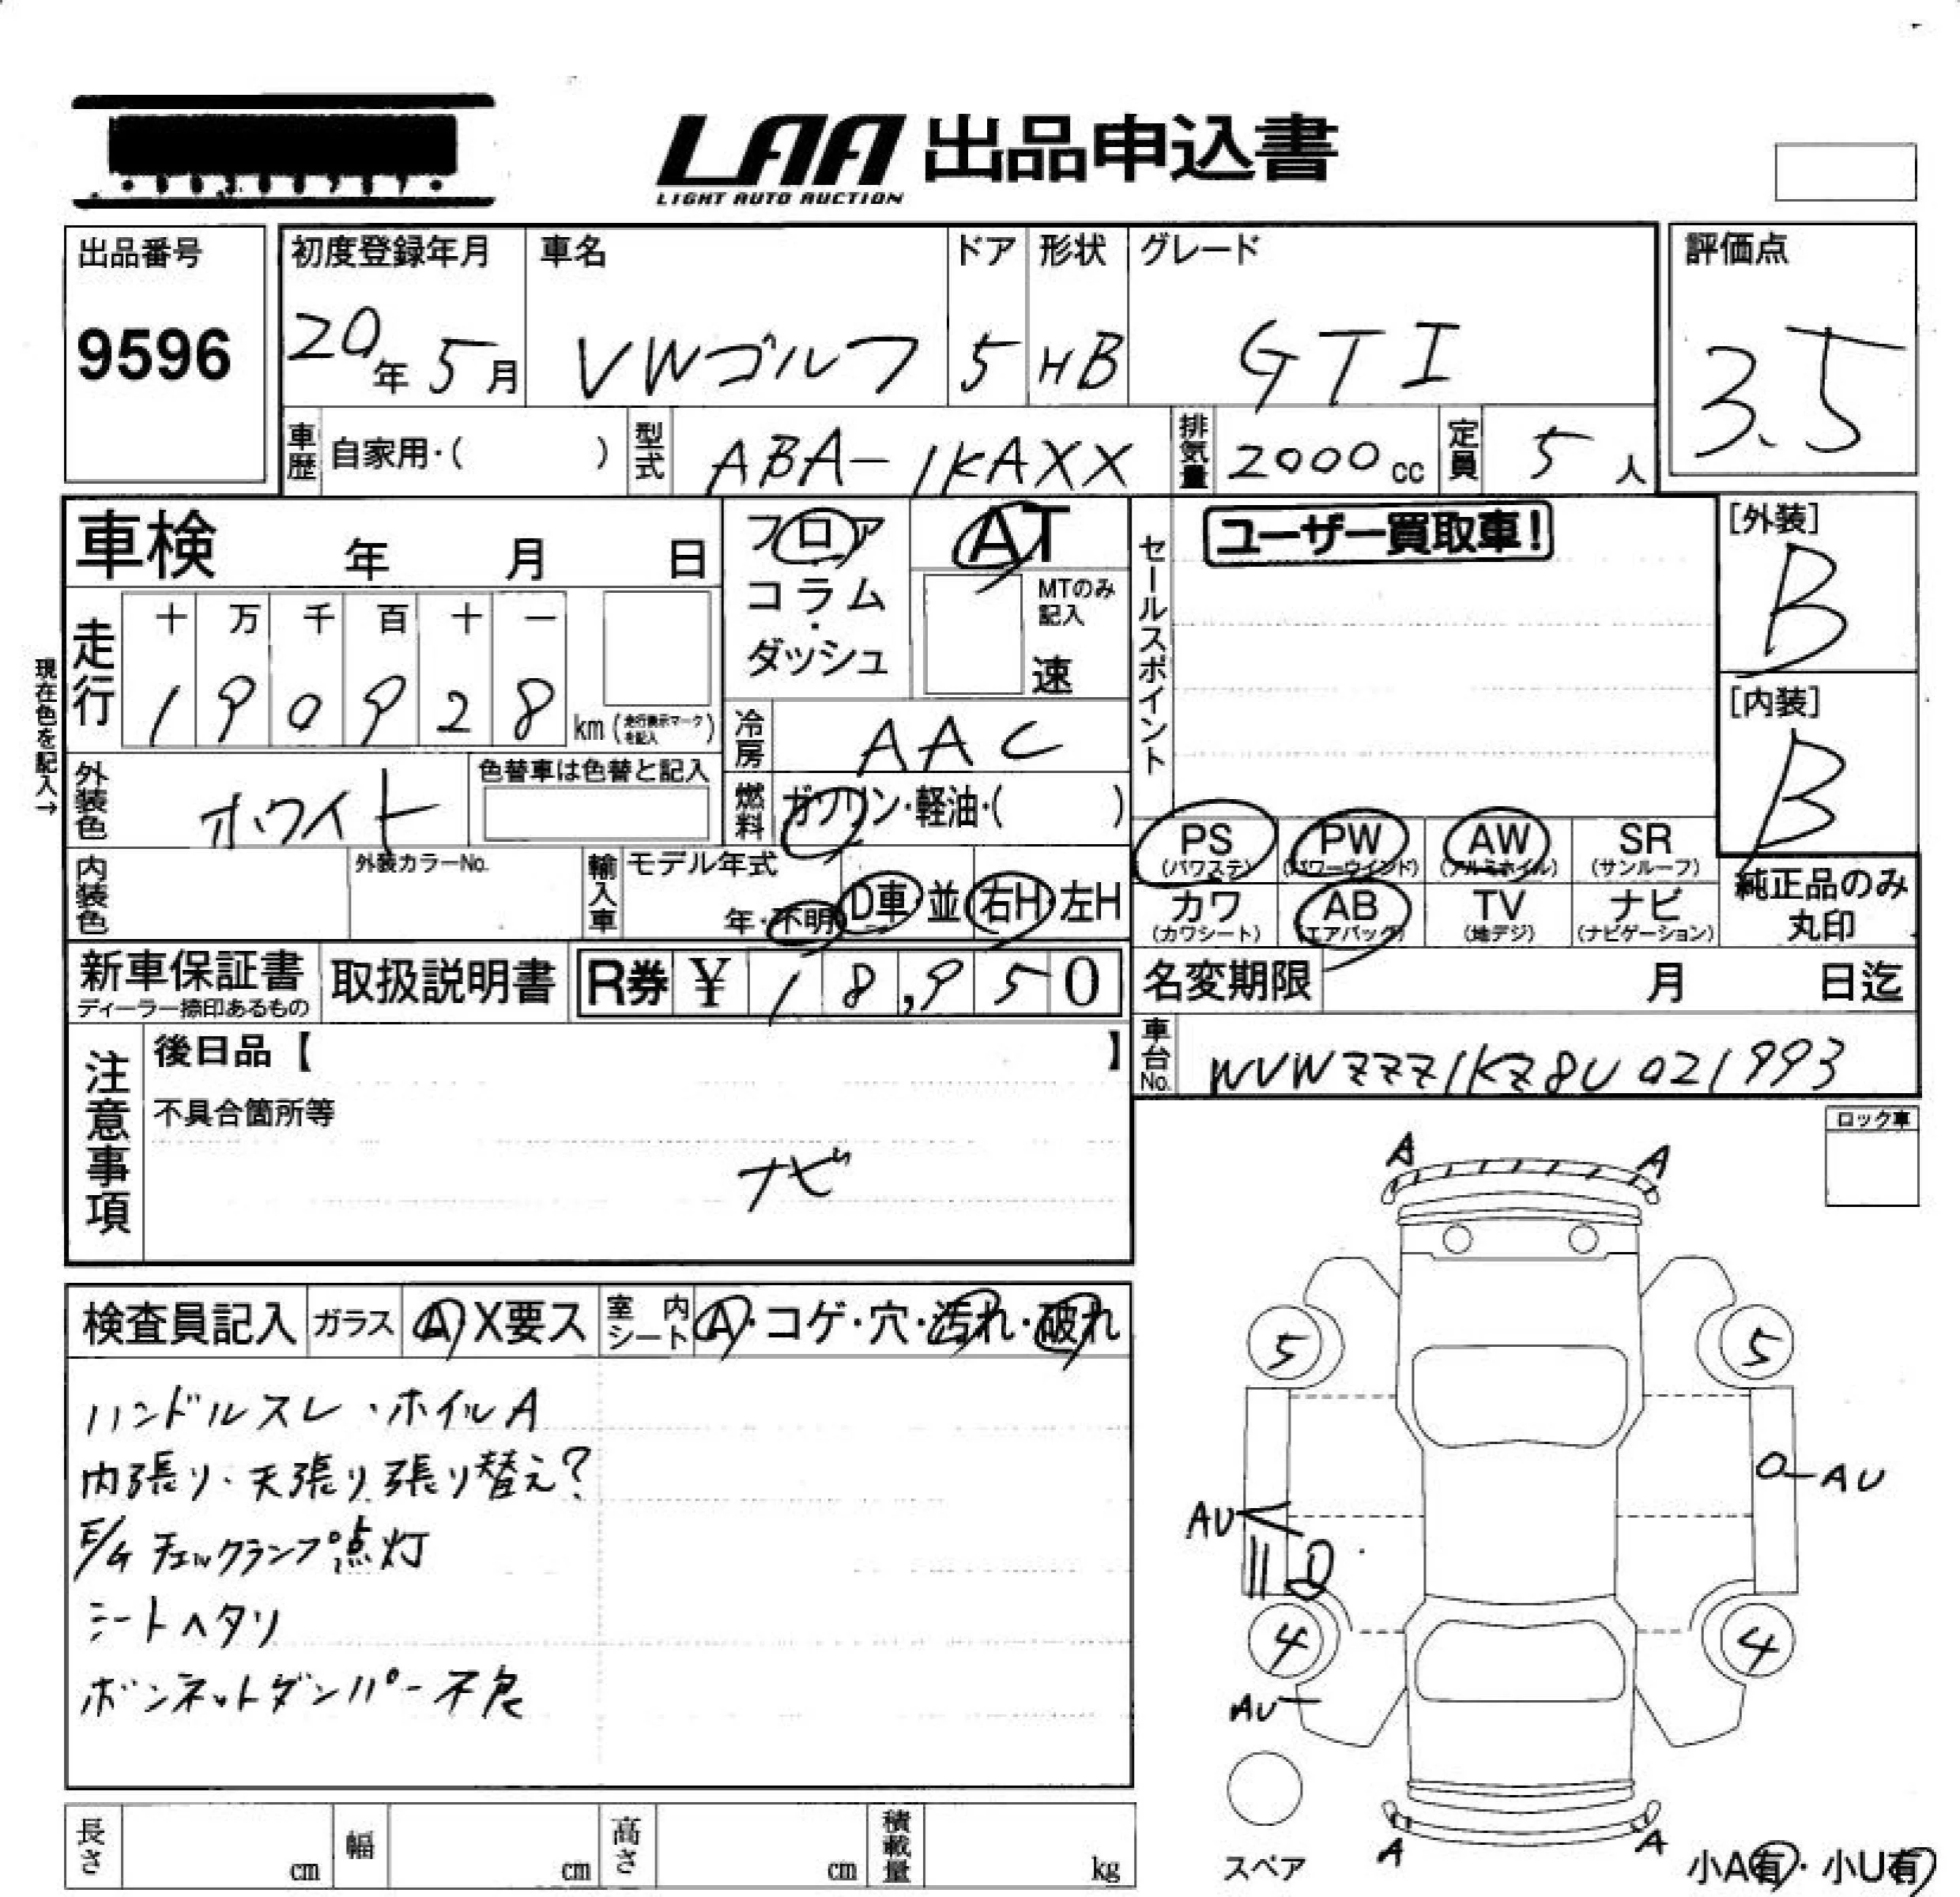 LAA 出品申込書
LIGHT AUTO AUCTION
出品番号
9596
初度登録年月
20年 5月
車名
VWゴルフ
ドア
5
形状
HB
グレード
GTI
評価点
3.5
車歴 自家用・( )
型式 ABA-1KAXX
排気量 2000cc
定員 5人
車検 年 月 日
フロア
コラム
・
ダッシュ
AT
MTのみ
記入
速
セールスポイント
ユーザー買取車!
[外装]
B
[内装]
B
現在色を記入→
走行
十 万 千 百 十 一
1 9 0 9 2 8 km (走行表示マークを記入)
冷房 AAC
外装色 ホワイト
色替車は色替と記入
燃料 ガソリン・軽油・( )
PS (パワステ)
PW (パワーウインド)
AW (アルミホイル)
SR (サンルーフ)
内装色
外装カラーNo.
輸入車
モデル年式
年・不明
D車 並 右H・左H
カワ (カワシート)
AB (エアバッグ)
TV (地デジ)
ナビ (ナビゲーション)
純正品のみ
丸印
新車保証書
ディーラー捺印あるもの
取扱説明書
R券 ¥ 18,950
名変期限 月 日迄
車台No. WVWZZZ1KZ8U021993
注意事項
後日品【 】
不具合箇所等
ナビ
ロック車
検査員記入
ガラス A X要ス
室内シート A・コゲ・穴・汚れ・破れ
ハンドルスレ・ホイルA
内張り・天張り張り替え?
E/G チェックランプ点灯
シートヘタリ
ボンネットダンパー不良
A A
5 5
AU
AU
D
4 4
AU
A A
スペア
小A有・小U有
長さ cm
幅 cm
高さ cm
積載量 kg